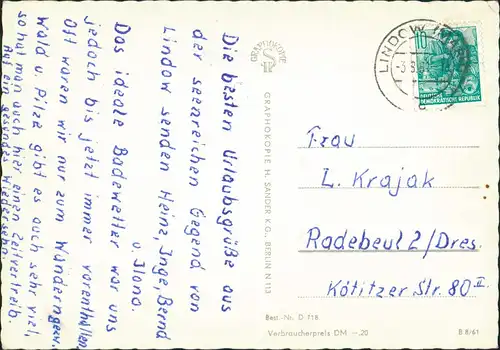 Die besten Urlaubsgrüße aus
der seenreichen Gegend von
Lindow senden Heinz, Inge, Bernd
u. Ilona.
Das ideale Badewetter war uns
jedoch bis jetzt immer vorenthalten
Oft waren wir nur zum Wandern gew.
Wald u. Pilze gibt es auch sehr viel,
so hat man auch hier einen Zeitvertreib.
Auf ein gesundes Wiedersehn.
GRAPHOKOPIE
GRAPHOKOPIE H. SANDER K.G., BERLIN N 113
LINDOW
10
DEUTSCHE
DEMOKRATISCHE REPUBLIK
Frau
L. Krajak
Radebeul 2/Dres.
Kötitzer Str. 80 II.
Best.-Nr. D 718
Verbraucherpreis DM –,20
B 8/61